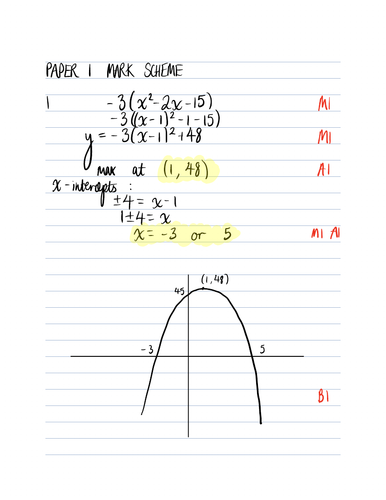 PAPER 1 MARK SCHEME
1 -3(x²-2x-15) M1
-3((x-1)²-1-15)
y = -3(x-1)²+48 M1
max at (1, 48) A1
x-intercepts:
±4 = x-1
1±4 = x
x = -3 or 5 M1 A1
(1,48)
45
-3 5
B1